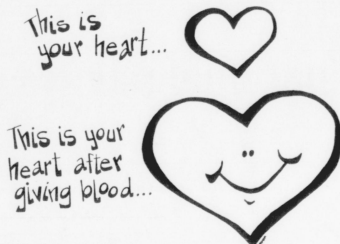 This is
your heart...
This is your
heart after
giving blood...